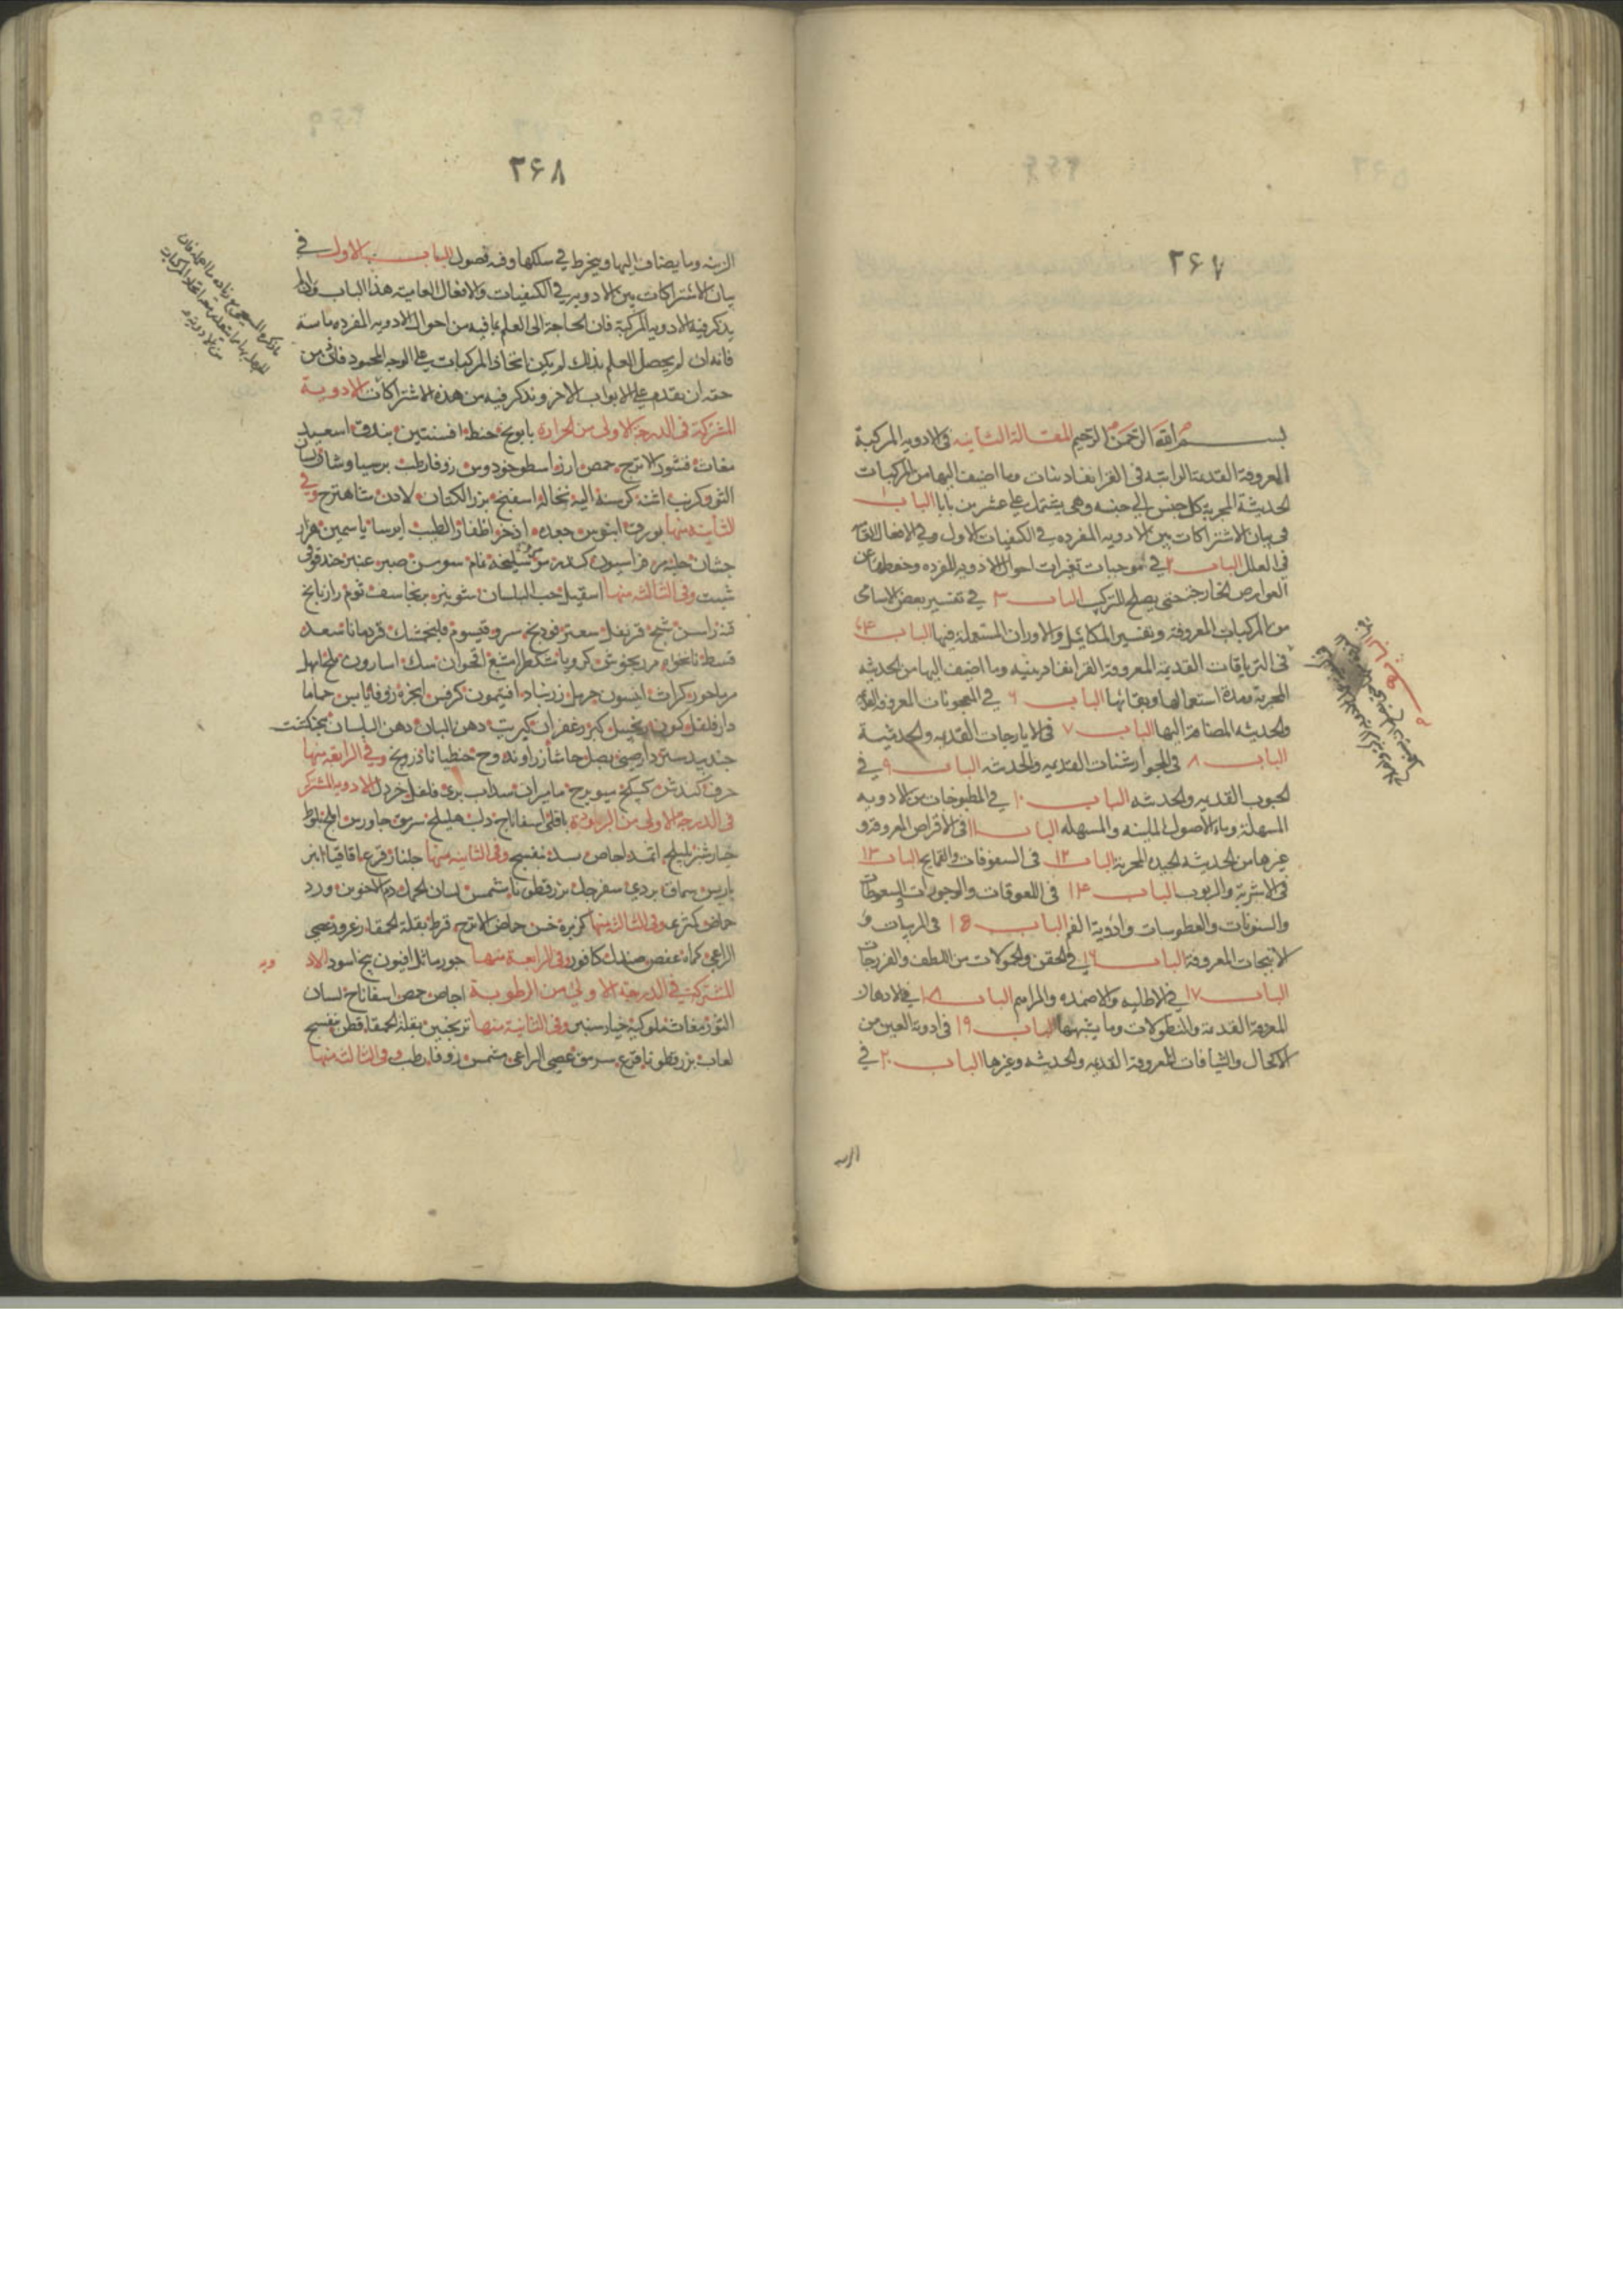 ٢٦٧
بسم الله الرحمن الرحيم المقالة الثانيه فى الادويه المركبة
المعروفة القديمة الراتبة فى القرابادينات وما اضيف اليها من المركبات
الحديثة المجربة كل جنس الى جنسه وهى يشتمل على عشرين بابا الباب ١
فى بيان الاشتراكات بين الادويه المفرده فى الكيفيات الاول وفى الافعال
فى العلل الباب ٢ فى موجبات تغيرات احوال الادويه المفرده وحفظها عن
العوارض الخارجة حتى يصلح للتركيب الباب ٣ فى تفسير بعض الاسامى
من المركبات المعروفة وتفسير المكائيل والاوزان المستعملة فيها الباب ۴
فى الترياقات القديمة المعروفة القرابادينيه وما اضيف اليها من الحديثه
المجربة ومدة استعمالها وبقائها الباب ٦ فى المعجونات المعروفه
والحديثه المضافة اليها الباب ٧ فى الايارجات القديمه والحديثية
الباب ٨ فى الجوارشنات القديمه والحديثه الباب ٩ فى
الحبوب القديمه والحديثه الباب ١٠ فى المطبوخات من الادويه
المسهلة وماء الاصول الملينه والمسهله الباب ١١ فى الاقراص المعروفة و
غيرها من الحديثه الجيده المجربة الباب ١٢ فى السفوفات والقمايح الباب ١٣
فى الاشربة والربوب الباب ١۴ فى اللعوقات والوجورات والسعوطات
والسنونات والعطوسات وادوية الفم الباب ١٥ فى المربيات و
الانبجات المعروفة الباب ١٦ فى الحقن والحمولات من الشيف والفرزجات
الباب ١٧ فى الاطليه والاضمده والمراهم الباب ١٨ فى الادهان
المعروفة القديمة والنطولات وما يشبهها الباب ١٩ فى ادوية العين من
الاكحال والشيافات المعروفة القديمه والحديثه وغيرها الباب ٢٠ فى
الزينه
٢٦٨
الزينه وما يضاف اليها وينخرط فى سلكها وفيه فصول الباب الاول فى
بيان الاشتراكات بين الادويه فى الكيفيات والافعال العامية هذا الباب وان لم
يذكر فيه الادويه المركبة فان الحاجة الى العلم بما فيه من احوال الادويه المفرده ماسة
فانه ان لم يحصل العلم بذلك لم يكن اتخاذ المركبات على الوجه المحمود فاذن من
حقه ان يقدم على الابواب الاخر ونذكر فيه من هذه الاشتراكات الادوية
المشتركة فى الدرجة الاولى من الحرارة بابونج حنطه افسنتين بندق
مغاث قشور الاترج حمص ارز اسطوخودوس زوفا رطب برسياوشان لسان
الثور كرنب اشنه كرسنة الية نخالة اسفنج بزر الكتان لادن شاهترج وفى
الثانيه منها بورق ابنوس جعده اذخر اظفار الطيب ايرسا ياسمين هزار
جشان حلبه مر فراسيون كندر سليخه نمام سوسن صبر عنبر حندقوقى
شبت وفى الثالثه منها اسقيل حب البلسان شونيز برنجاسف ثوم رازيانج
قنه راسن شيح قرنفل سعتر فودنج سرو قيسوم فلنجمشك قردمانا سعد
قسط نانخواه مرزنجوش كرويا مشكطرامشيع اقحوان سك اسارون ملح ابهل
مرماحوز كراث انيسون حرمل زرنباد افتيمون كرفس انجره زوفا يابس حماما
دارفلفل كمون زنجبيل كبر زعفران كبريت دهن البان دهن البلسان بنجنكشت
جندبيدستر دارصينى بصل حاشا زراوند وج جنطيانا زرنيخ وفى الرابعة منها
حرف كندش كبيكج ميويزج ماميران سداب برى فلفل خردل الادويه المشتركة
فى الدرجة الاولى من البرودة باقلى اسفاناخ دلب هليلج سرمق جاورس املج بلوط
خيارشنبر بليلج اثمد اجاص بسد بنفسج وفى الثانيه منها جلنار قرع اقاقيا انبر
باريس سماق بردى سفرجل بزرقطونا مشمش لسان الحمل دم الاخوين ورد
حماض كمثرى وفى الثالثه منها كزبرة خس حماض الاترج قرط بقلة الحمقاء زعرور عصى
الراعى كماه عفص صندل كافور وفى الرابعة منها جوز ماثل افيون بنج اسود الاد
ويه
المشتركة فى الدرجة الاولى من الرطوبة اجاص حمص اسفاناخ لسان
الثور مغاث ملوكيه خيار وفى الثانية منها ترنجبين بقلة الحمقاء قطن بنفسج
لعاب بزرقطونا قرع سرمق عصى الراعى مشمش زوفا رطب وفى الثالثه منها